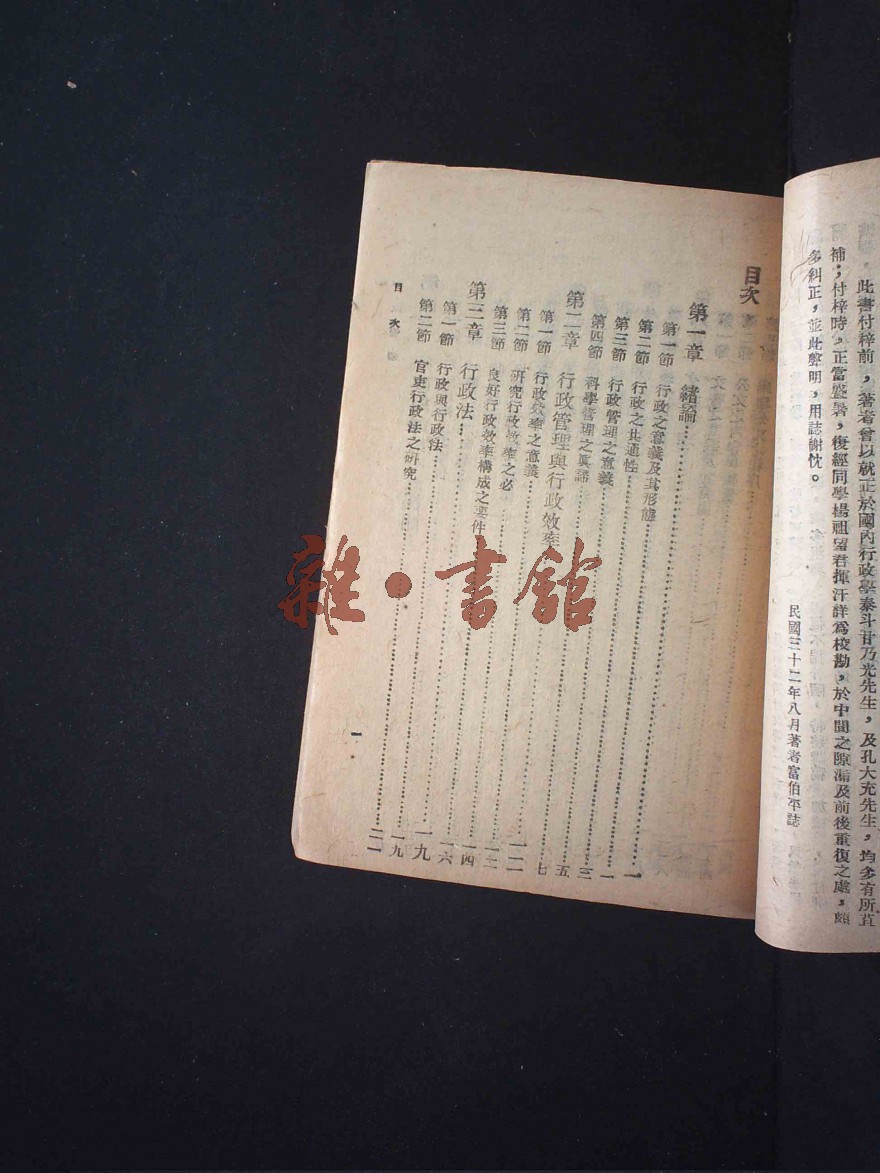 此書付梓前，著者曾以就正於國內行政學泰斗甘乃光先生，及孔大充先生，均多有所匡
補；付梓時，正當盛暑，復經同學楊祖望君揮汗詳爲校勘，於中間之隙漏及前後重復之處，頗
多糾正，並此聲明，用誌謝忱。
民國三十二年八月著者富伯平誌
目次
第一章　緒論……一
第一節　行政之意義及其形態……一
第二節　行政之共通性……三
第三節　行政管理之意義……五
第四節　科學管理之真諦……七
第二章　行政管理與行政效率……一二
第一節　行政效率之意義……一二
第二節　研究行政效率之必……一四
第三節　良好行政效率構成之要件……一六
第三章　行政法……一九
第一節　行政與行政法……一九
第二節　官吏行政法之研究……二一
目次
一
雜·書館